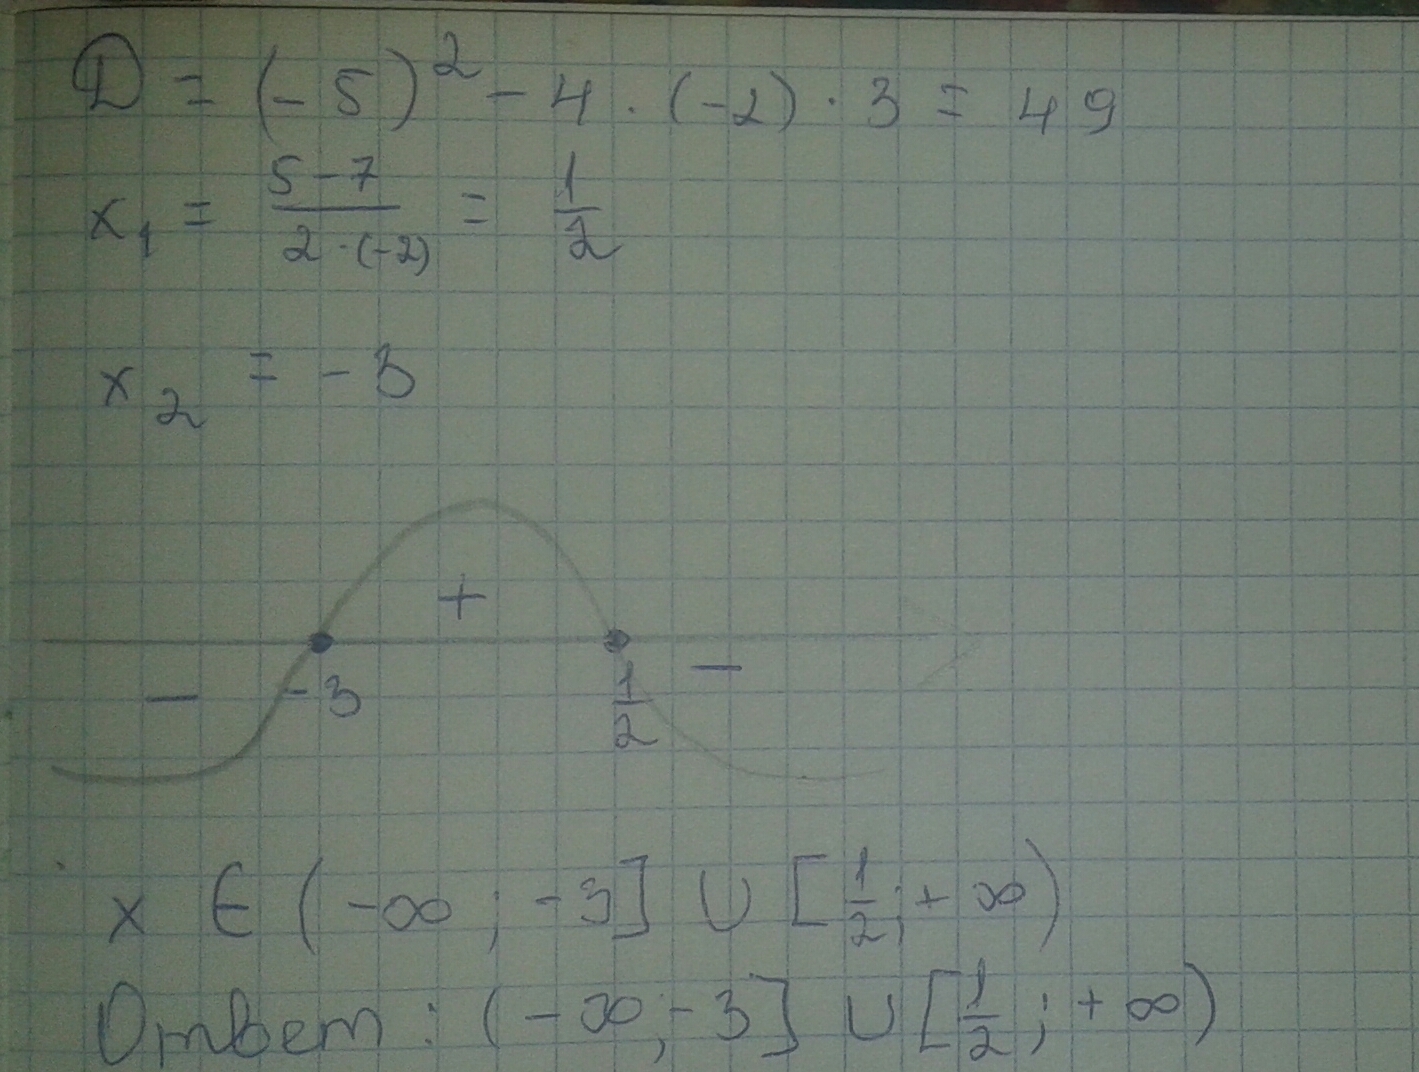 D = (-5)² - 4 · (-2) · 3 = 49
x₁ = (5-7)/(2·(-2)) = 1/2
x₂ = -3
+
- -3 1/2 -
x ∈ (-∞; -3] ∪ [1/2; +∞)
Ответ: (-∞; -3] ∪ [1/2; +∞)